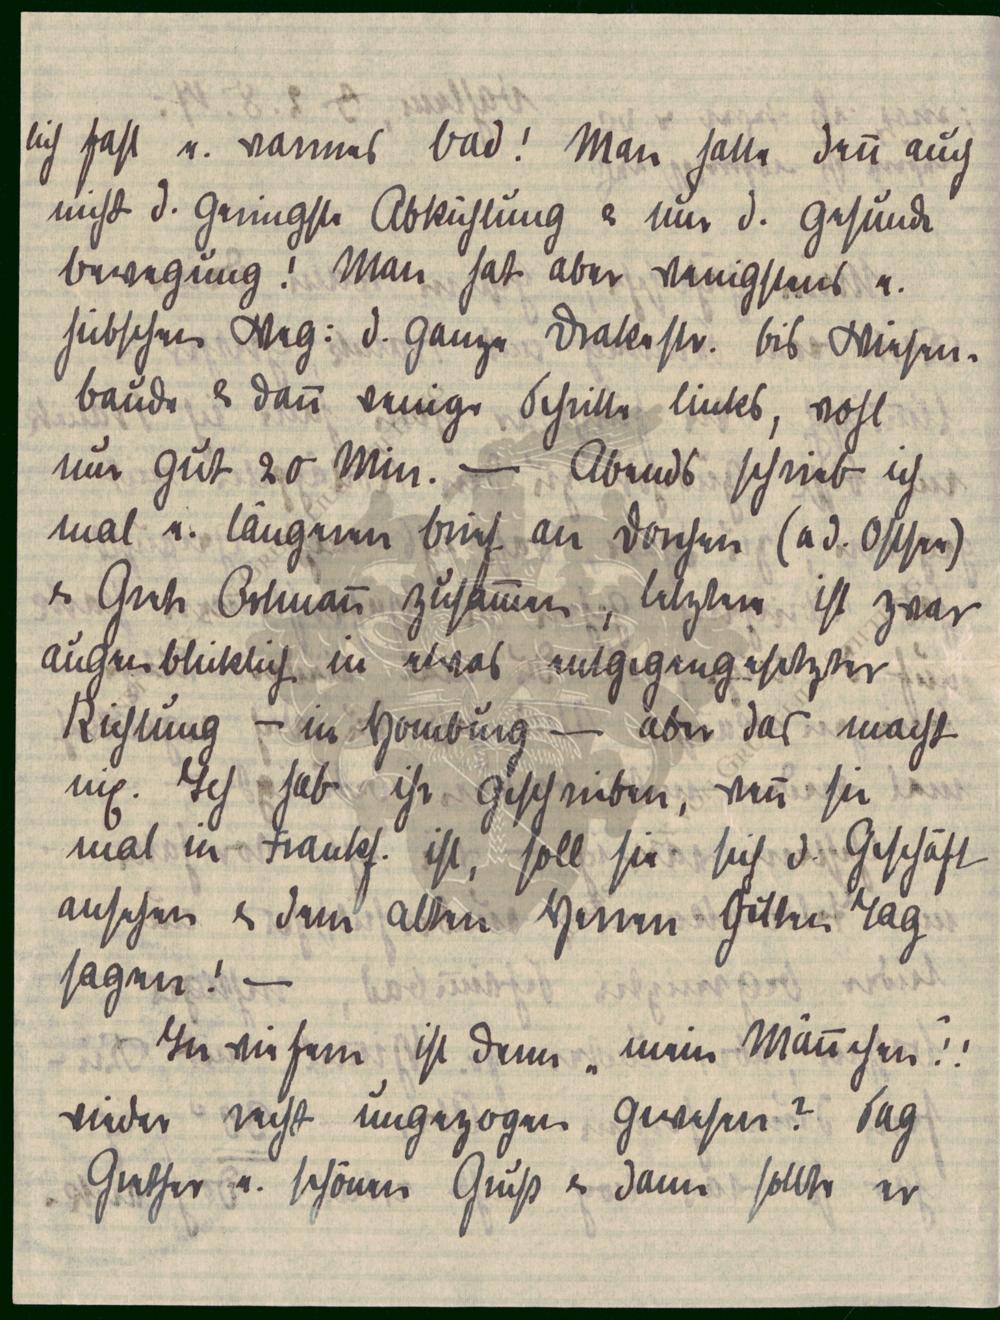 lich fast e. warmes Bad! Man hatte den̄ auch
nicht d. geringste Abkühlung & nur d. gesunde
Bewegung! Man hat aber wenigstens e.
hübschen Weg: d. ganze Drakestr. bis Wiesen-
baude & dan̄ wenige Schritte links, wohl
nur gut 20 Min. — Abends schrieb ich
mal e. längeren Brief an Dorchen (a d. Ostsee)
& Grete zusam̄en, letztere ist zwar
augenblicklich in etwas entgegengesetzter
Richtung – in Homburg – aber das macht
nix. Ich hab ihr geschrieben, wen̄ sie
mal in Frankf. ist, soll sie sich d. Geschäft
ansehen & dem alten Herren Guten Tag
sagen! —
In wiefern ist denn „mein Män̄chen"!!
wieder recht ungezogen gewesen? Sag
Günther e. schönen Gruß & dann sollte er